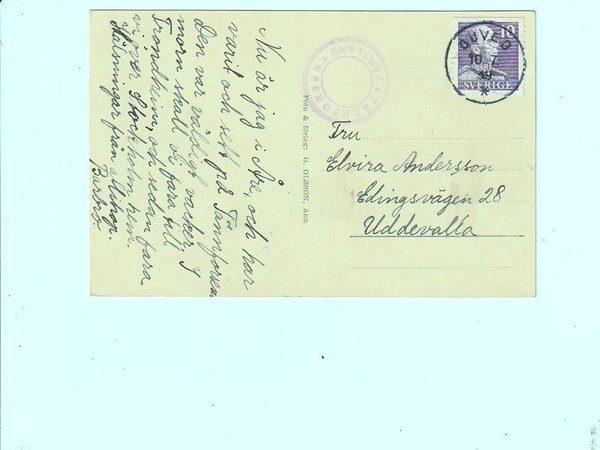 Nu är jag i Åre, och har
varit och sett på Tännforsen
Den var väldigt vacker. I
morn skall vi fara till
Trondhiem, och sedan fara
vi över Stockholm hem.
Hälsningar från
Barbro.
Foto & förlag: O. OLSSON, Ann.
TÄNNFORSEN
DUVED
10 7.
39
10
SVERIGE
Fru
Elvira Andersson
Edingsvägen 28
Uddevalla